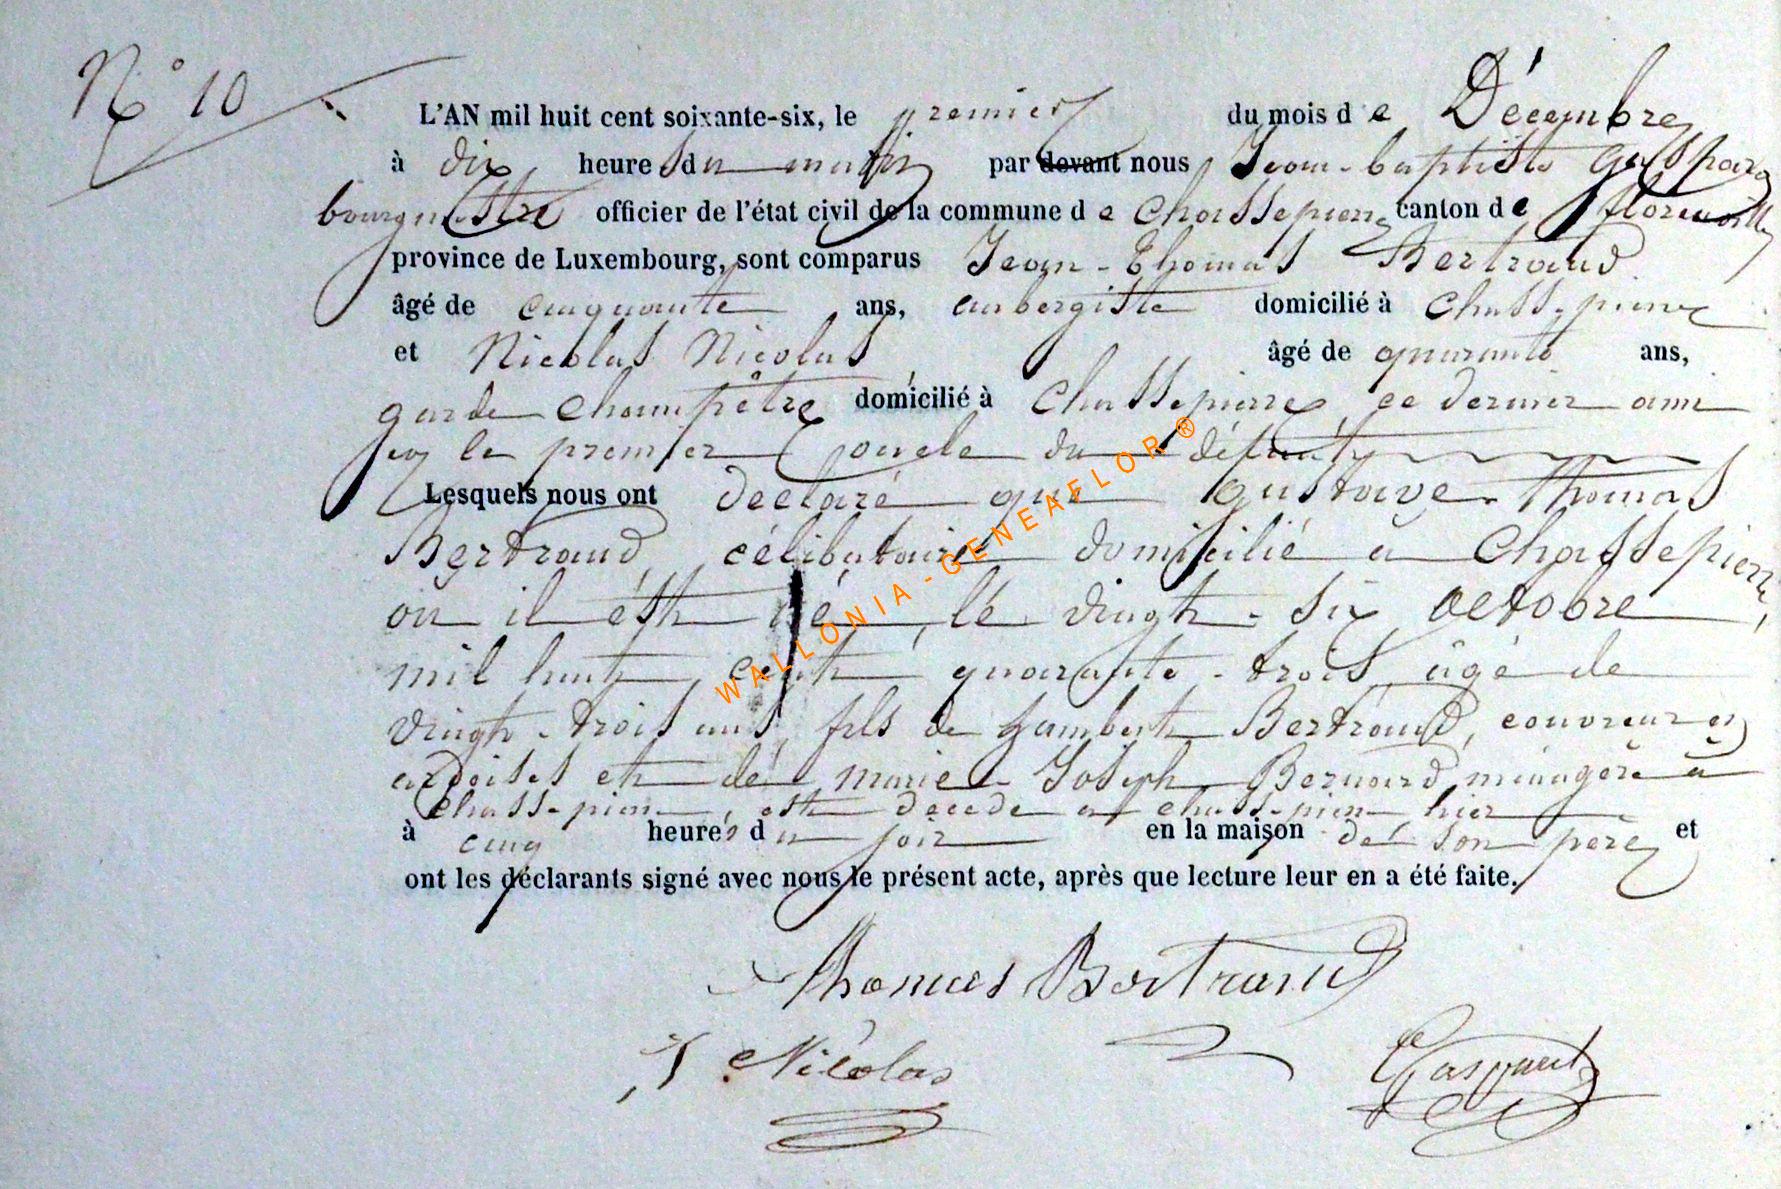 N° 10
L'AN mil huit cent soixante-six, le premier du mois de Décembre
à dix heures du matin par devant nous Jean-baptiste Gaspard
bourgmestre officier de l'état civil de la commune de Chassepierre canton de florenville
province de Luxembourg, sont comparus Jean-Thomas Bertrand
âgé de cinquante ans, aubergiste domicilié à Chassepierre
et Nicolas Nicolas âgé de quarante ans,
garde champêtre domicilié à Chassepierre, ce dernier ami
le premier oncle du défunt
Lesquels nous ont declaré que Gustave-Thomas
Bertrand, célibataire domicilié à Chassepierre
ou il ést né, lé vingt-six octobre
mil huit cent quarante-trois, âgé de
vingt-trois ans, fils de Lambert Bertrand, couvreur en
ardoises et dé marie Joseph Bernard, ménagère à
chassepierre, est decede a chassepierre hier
à cinq heures du soir en la maison dé son père et
ont les déclarants signé avec nous le présent acte, après que lecture leur en a été faite.
Thomas Bertrand
J Nicolas
Gaspard
WALLONIA-GENEAFLOR®